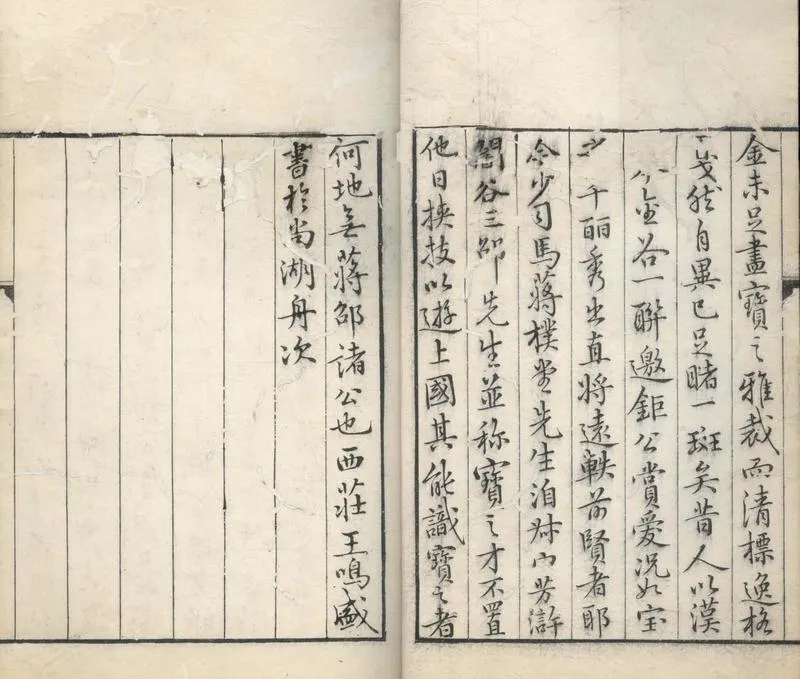 金未足盡寶之雅裁而清標逸格
戔然自異已足睹一斑矣昔人以漠
金谷一聯邀鉅公賞愛況如宝
之千丽秀出直將遠軼前賢者耶
今少司馬蔣樸堂先生洎舜山芳滸
誾谷三邵先生並称寶之才不置
他日挾技以遊上國其能識寶之者
何地无蔣邵諸公也西莊王鳴盛
書於尚湖舟次